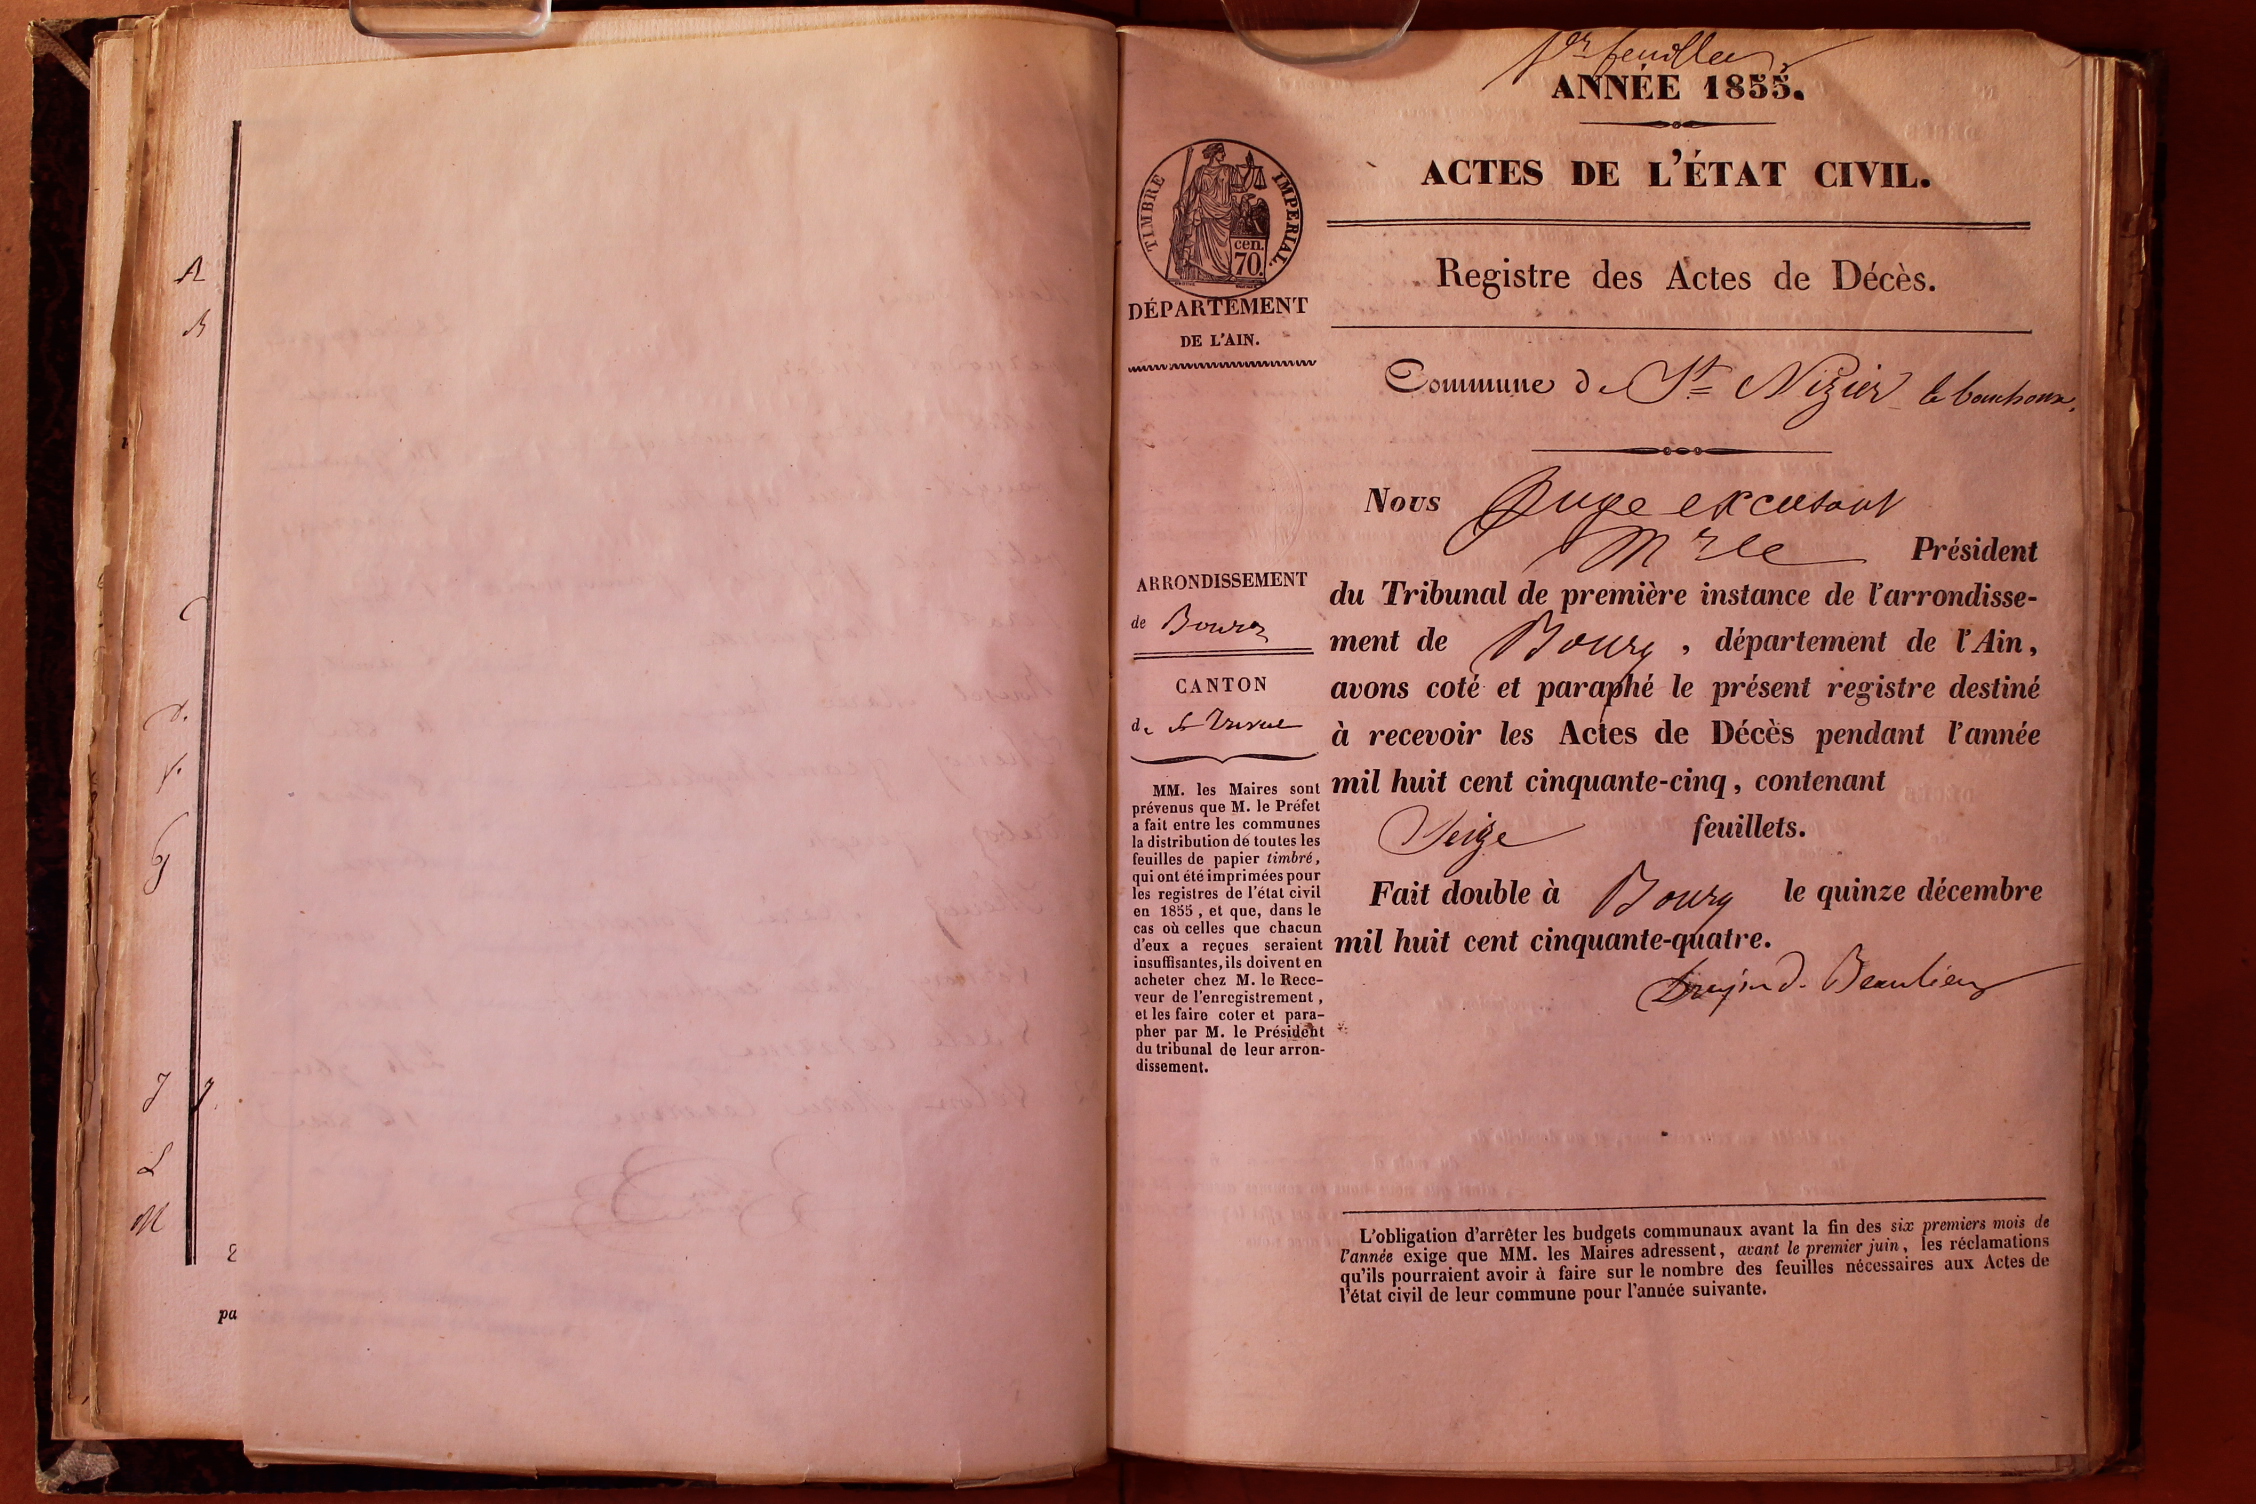 A
B
C
D.
F.
G
J J.
L
M
2
pa
1er feuillet
ANNÉE 1855.
ACTES DE L'ÉTAT CIVIL.
Registre des Actes de Décès.
Commune de St Nizier le bouchoux.
Nous Juge
Président
du Tribunal de première instance de l'arrondisse-
ment de Bourg, département de l'Ain,
avons coté et paraphé le présent registre destiné
à recevoir les Actes de Décès pendant l'année
mil huit cent cinquante-cinq, contenant
Seize feuillets.
Fait double à Bourg le quinze décembre
mil huit cent cinquante-quatre.
Beaulieu
L'obligation d'arrêter les budgets communaux avant la fin des six premiers mois de
l'année exige que MM. les Maires adressent, avant le premier juin, les réclamations
qu'ils pourraient avoir à faire sur le nombre des feuilles nécessaires aux Actes de
l'état civil de leur commune pour l'année suivante.
TIMBRE IMPERIAL.
cen.
70.
DÉPARTEMENT
DE L'AIN.
ARRONDISSEMENT
de Bourg
CANTON
de St Trivier
MM. les Maires sont
prévenus que M. le Préfet
a fait entre les communes
la distribution de toutes les
feuilles de papier timbré,
qui ont été imprimées pour
les registres de l'état civil
en 1855, et que, dans le
cas où celles que chacun
d'eux a reçues seraient
insuffisantes, ils doivent en
acheter chez M. le Rece-
veur de l'enregistrement,
et les faire coter et para-
pher par M. le Président
du tribunal de leur arron-
dissement.